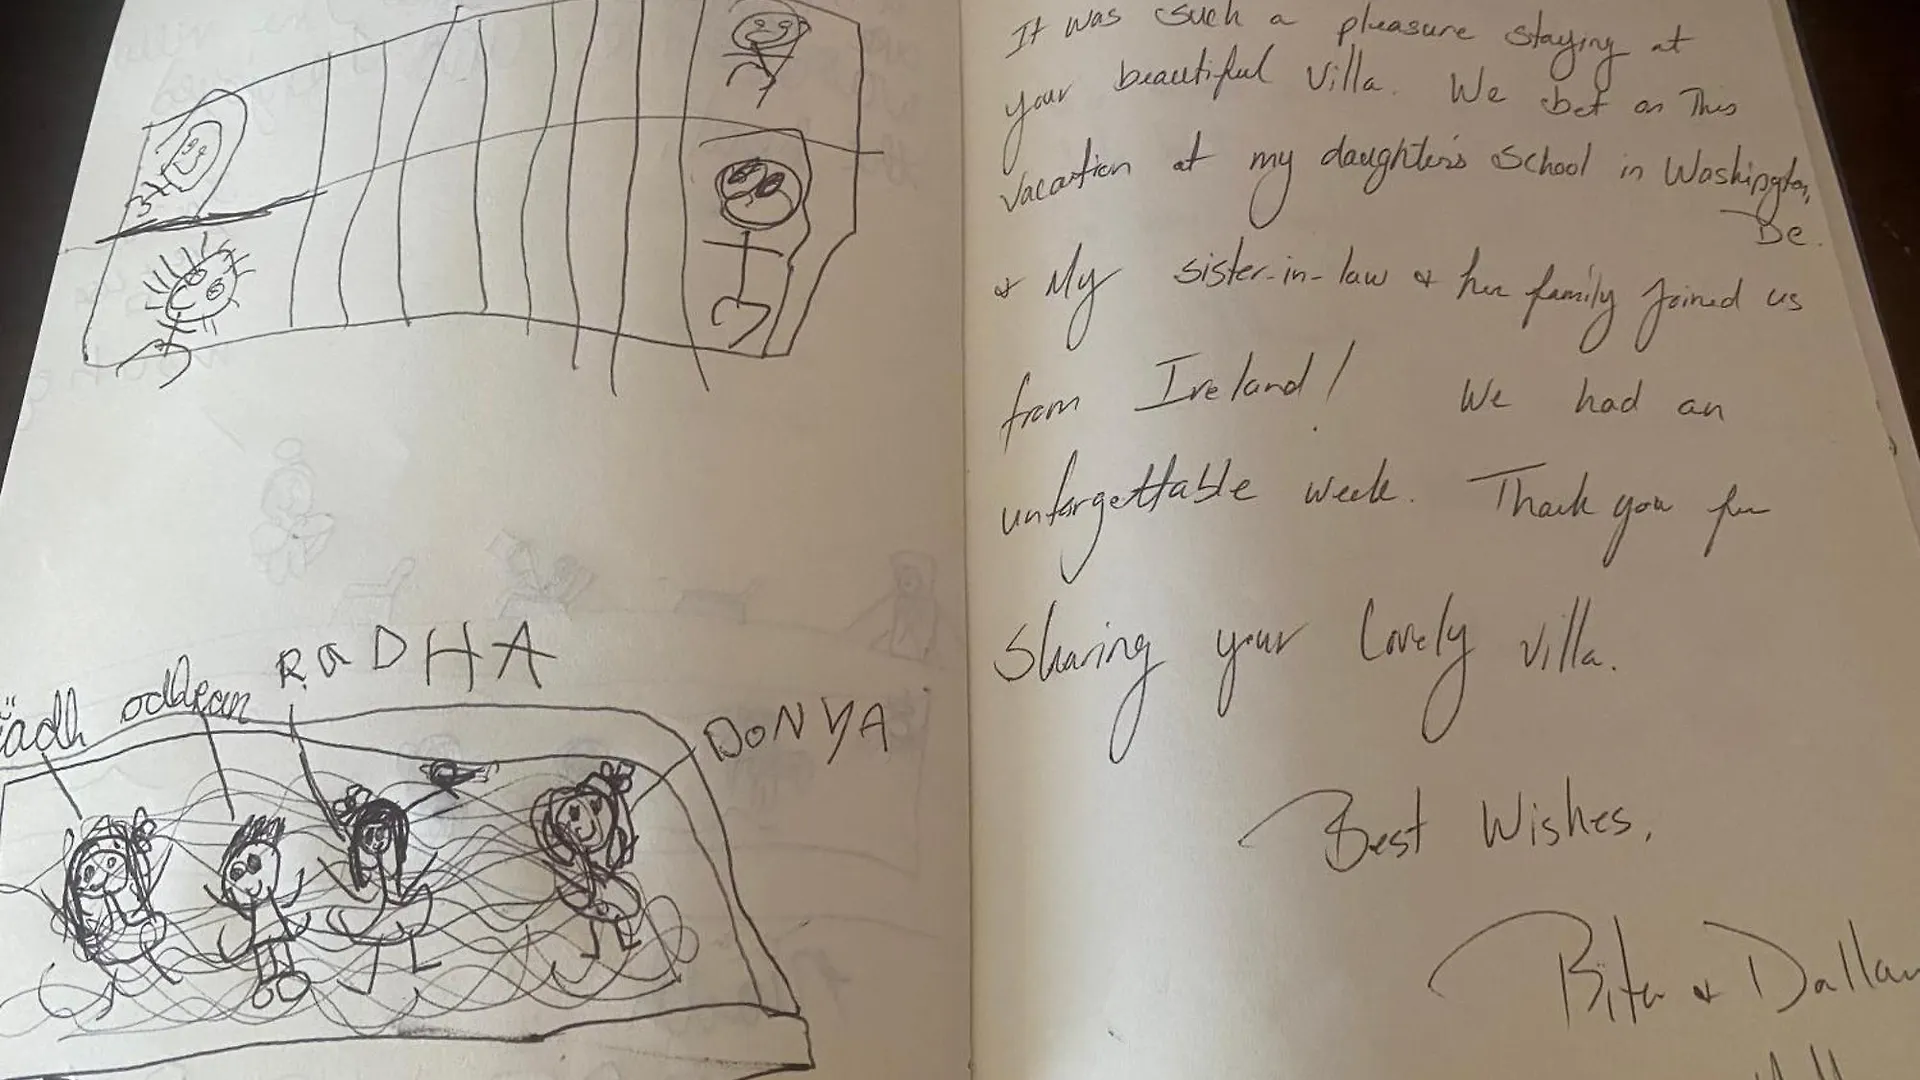 RaDHA
DONYA
It was such a pleasure staying at
your beautiful Villa. We bet on This
vacation at my daughter's School in Washington,
DC.
& My sister-in-law & her family joined us
from Ireland! We had an
unforgettable week. Thank you for
Sharing your lovely villa.
Best Wishes,
Bita & Dallan